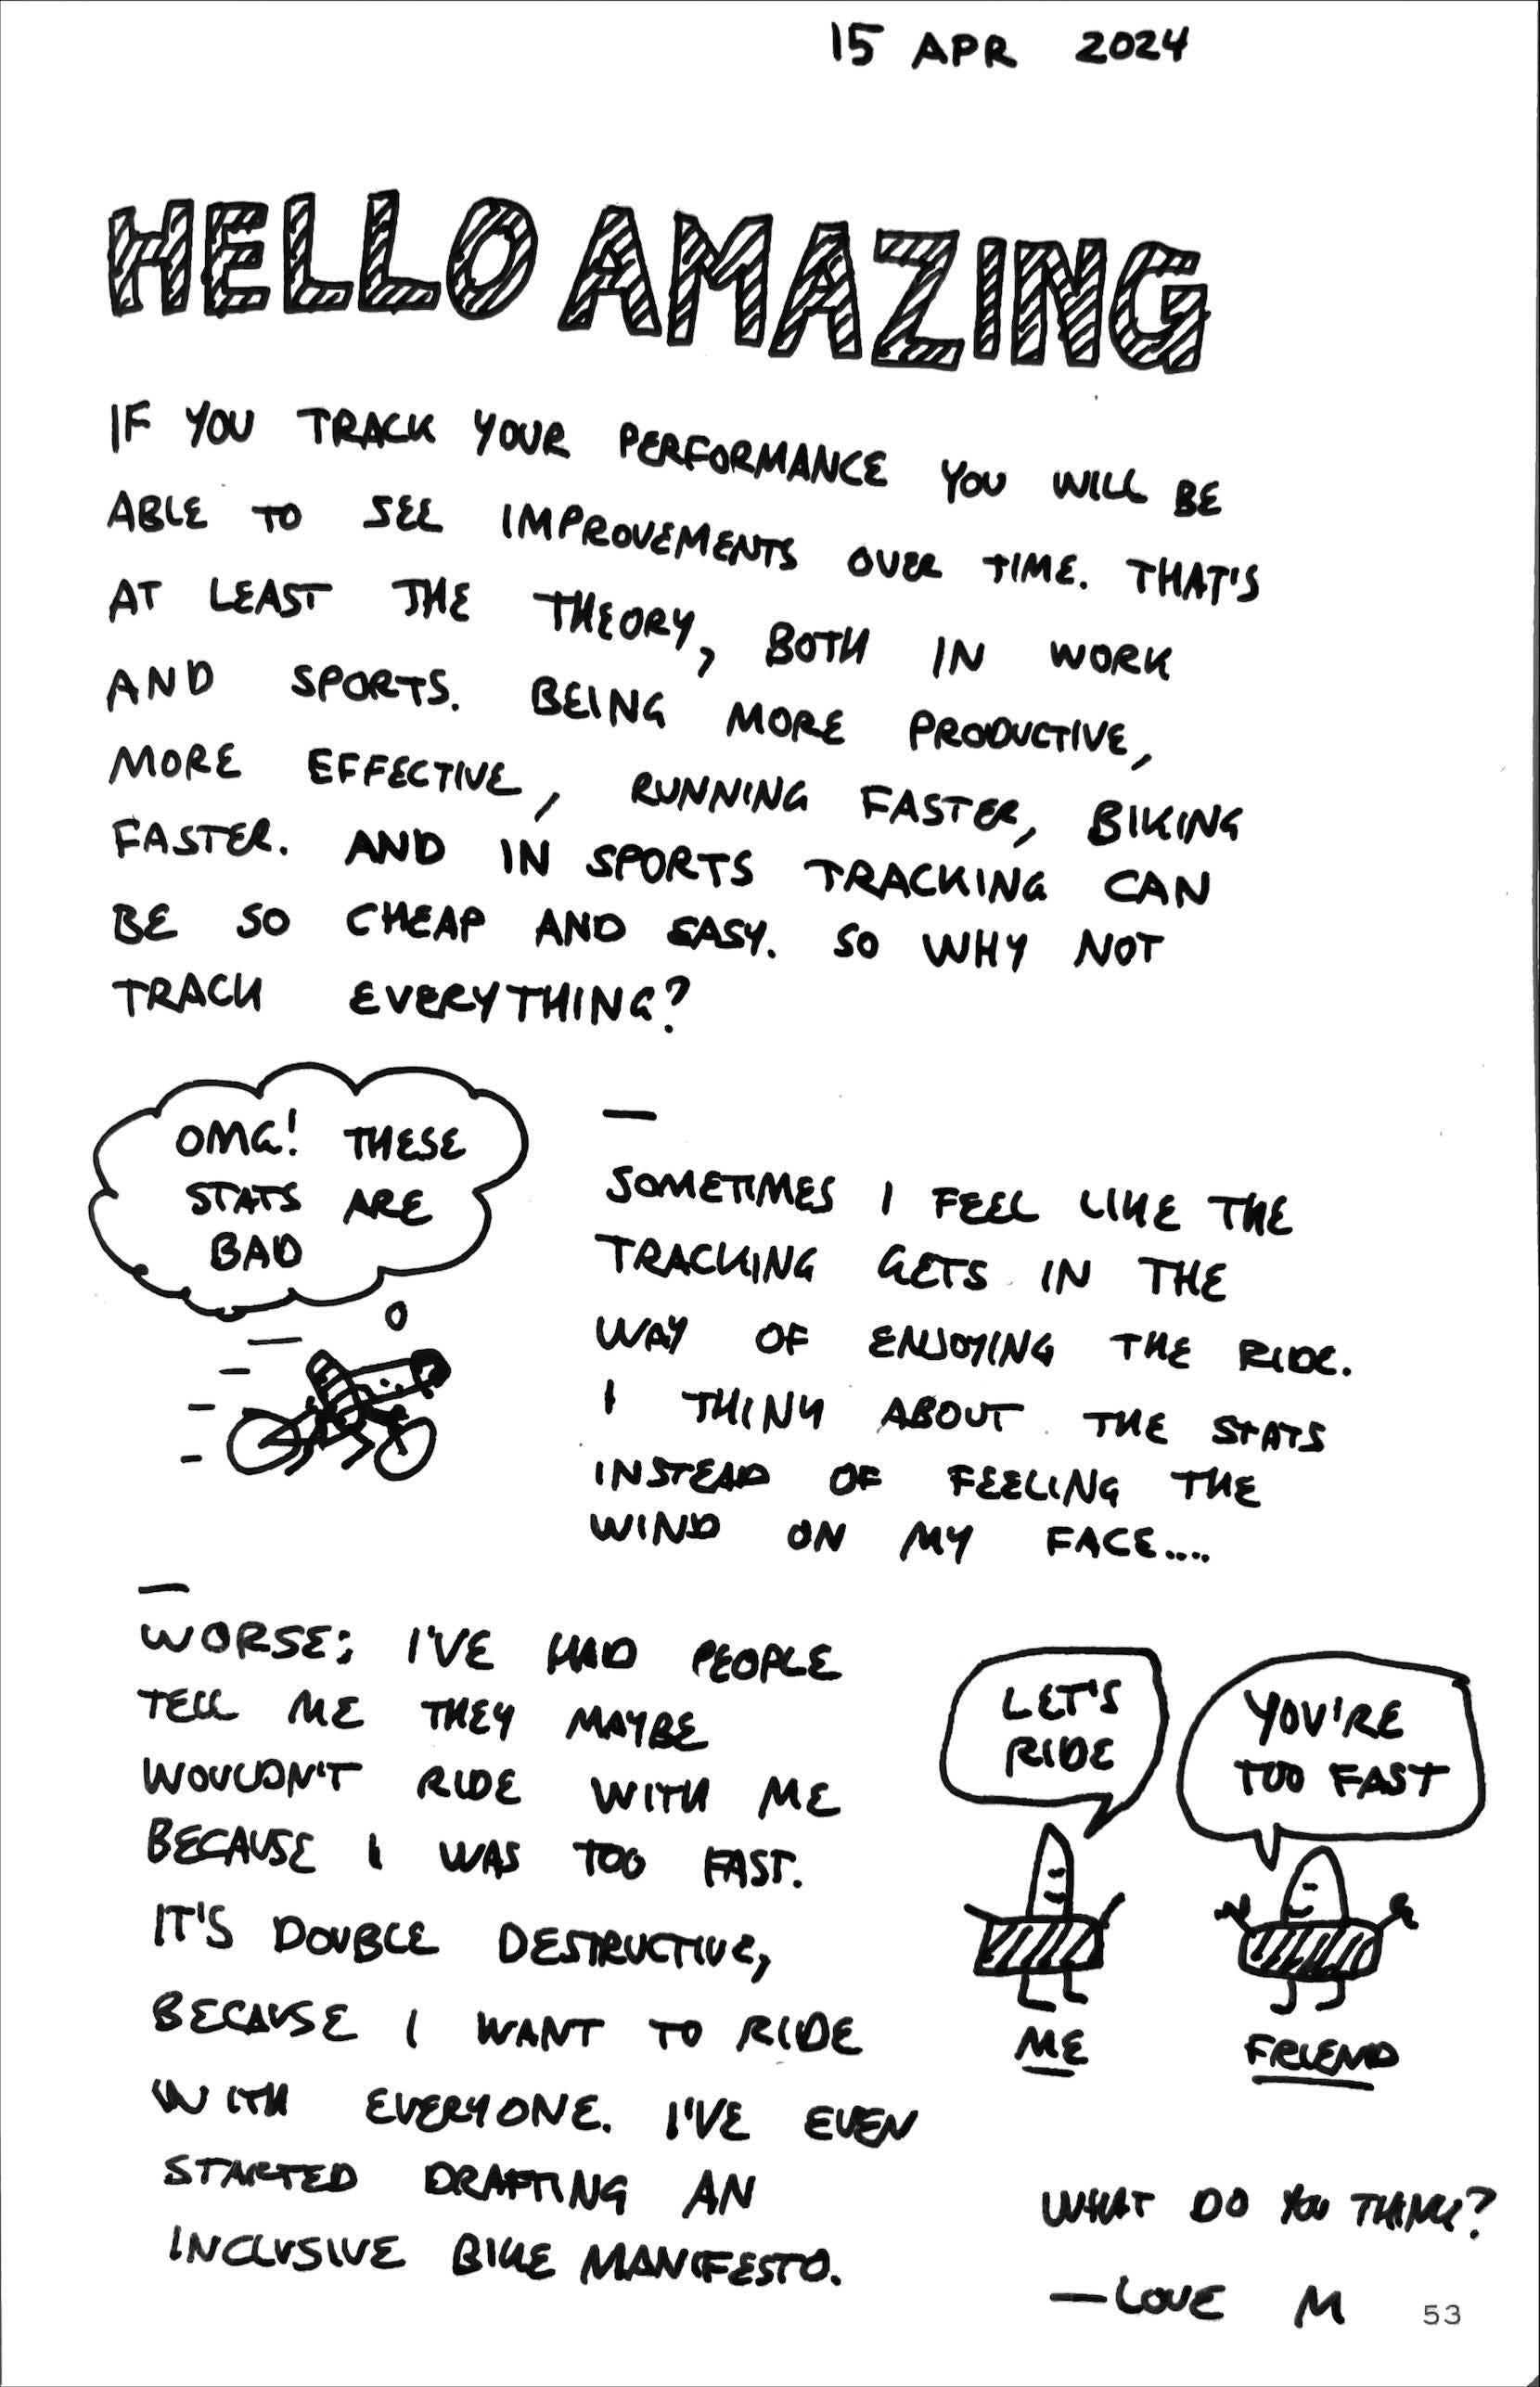 15 APR 2024
HELLO AMAZING
IF YOU TRACK YOUR PERFORMANCE YOU WILL BE
ABLE TO SEE IMPROVEMENTS OVER TIME. THAT'S
AT LEAST THE THEORY, BOTH IN WORK
AND SPORTS. BEING MORE PRODUCTIVE,
MORE EFFECTIVE, RUNNING FASTER, BIKING
FASTER. AND IN SPORTS TRACKING CAN
BE SO CHEAP AND EASY. SO WHY NOT
TRACK EVERYTHING?
OMG! THESE
STATS ARE
BAD
—
SOMETIMES I FEEL LIKE THE
TRACKING GETS IN THE
WAY OF ENJOYING THE RIDE.
I THINK ABOUT THE STATS
INSTEAD OF FEELING THE
WIND ON MY FACE....
—
WORSE; I'VE HAD PEOPLE
TELL ME THEY MAYBE
WOULDN'T RIDE WITH ME
BECAUSE I WAS TOO FAST.
IT'S DOUBLE DESTRUCTIVE,
BECAUSE I WANT TO RIDE
WITH EVERYONE. I'VE EVEN
STARTED DRAFTING AN
INCLUSIVE BIKE MANIFESTO.
LET'S
RIDE
YOU'RE
TOO FAST
ME
FRIEND
WHAT DO YOU THINK?
—LOVE M
53